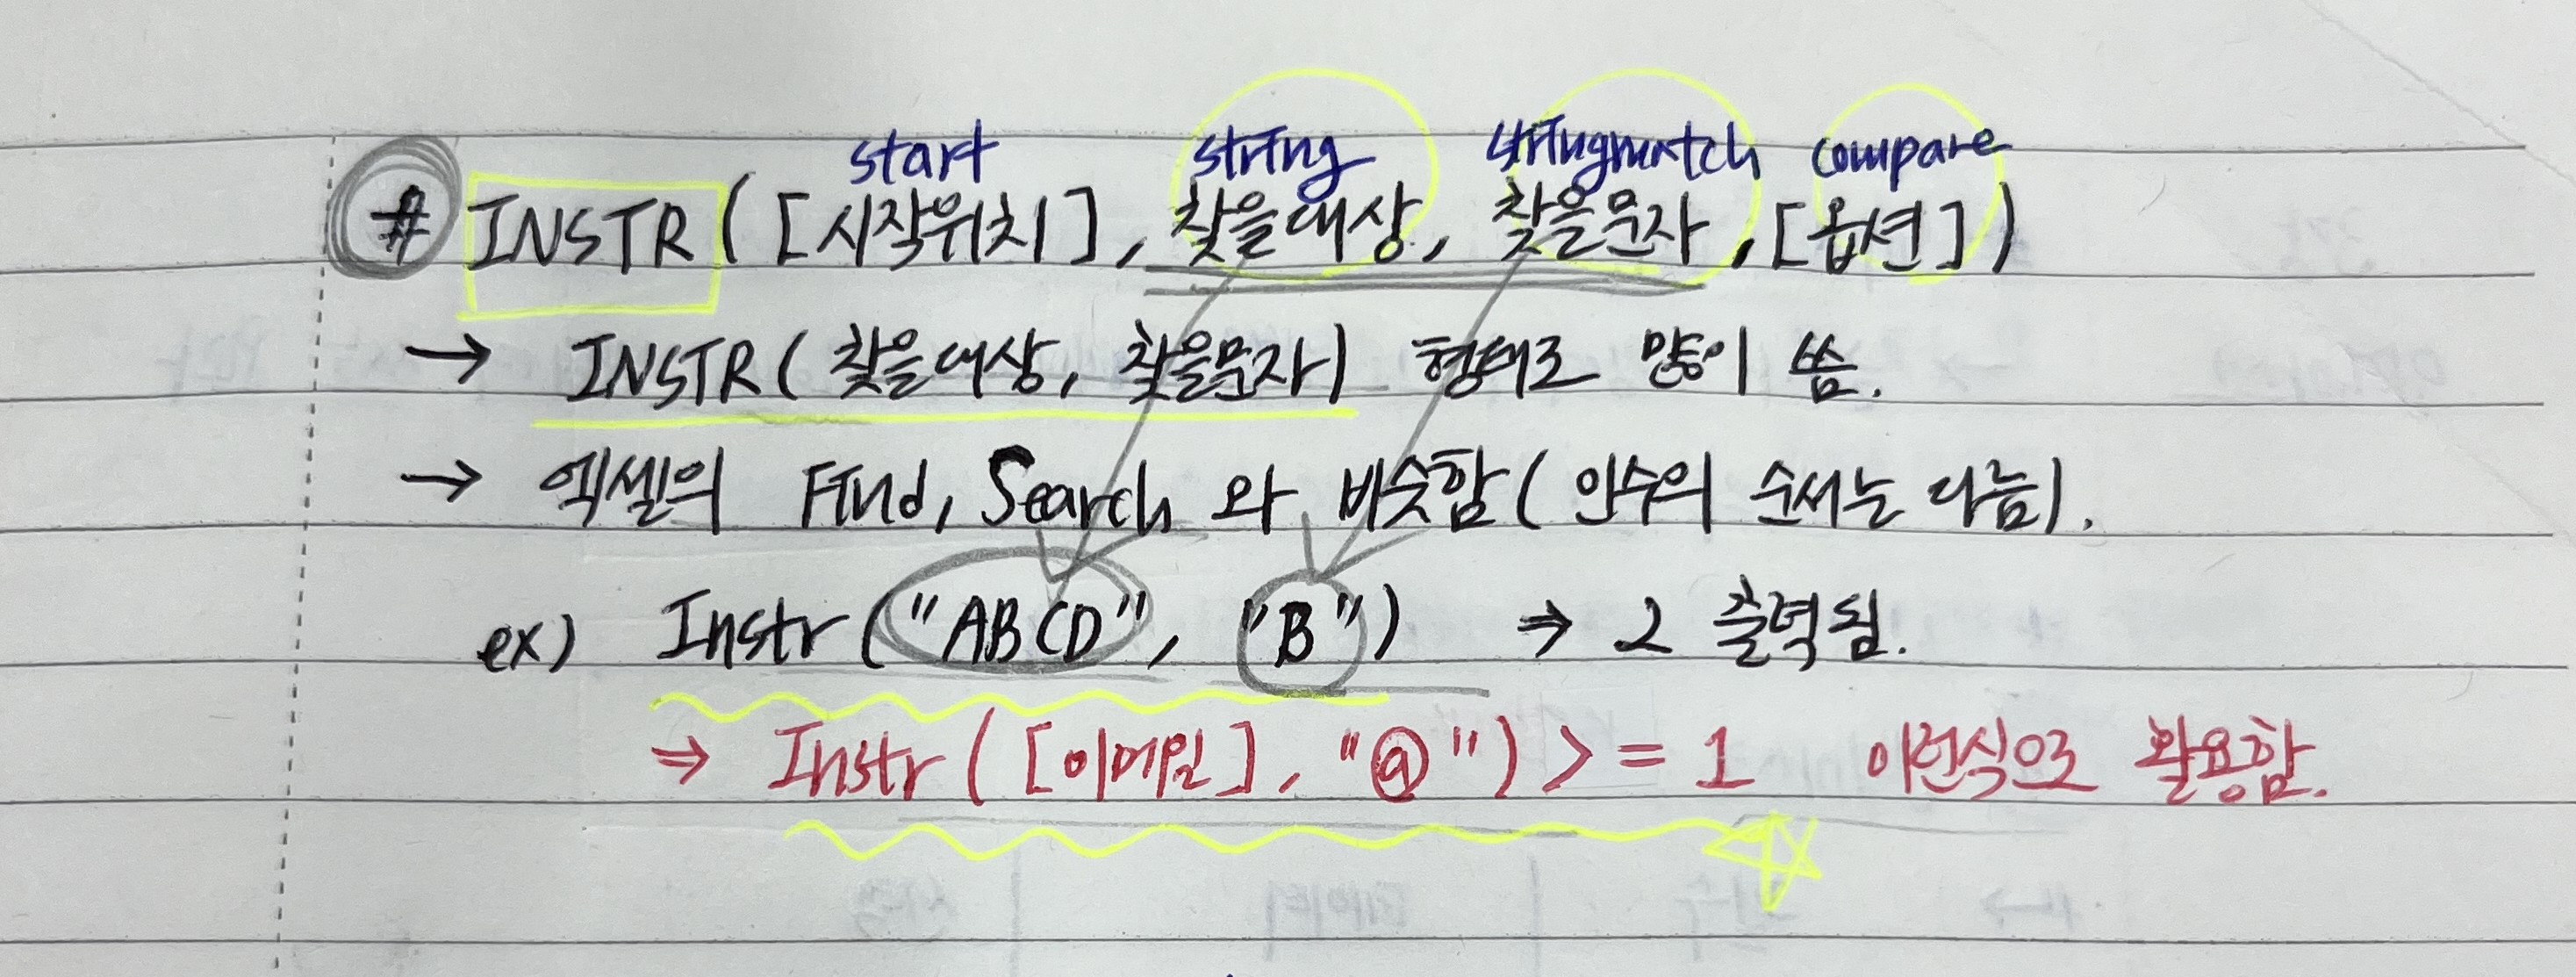 start string stringmatch compare
# INSTR ( [시작위치], 찾을대상, 찾을문자, [옵션] )
→ INSTR ( 찾을대상, 찾을문자) 형태로 많이 씀.
→ 엑셀의 Find, Search 와 비슷함 ( 인수의 순서는 다름).
ex) Instr ("ABCD", "B") ⇒ 2 출력됨.
⇒ Instr ( [이메일], "@") >= 1 이런식으로 활용함.